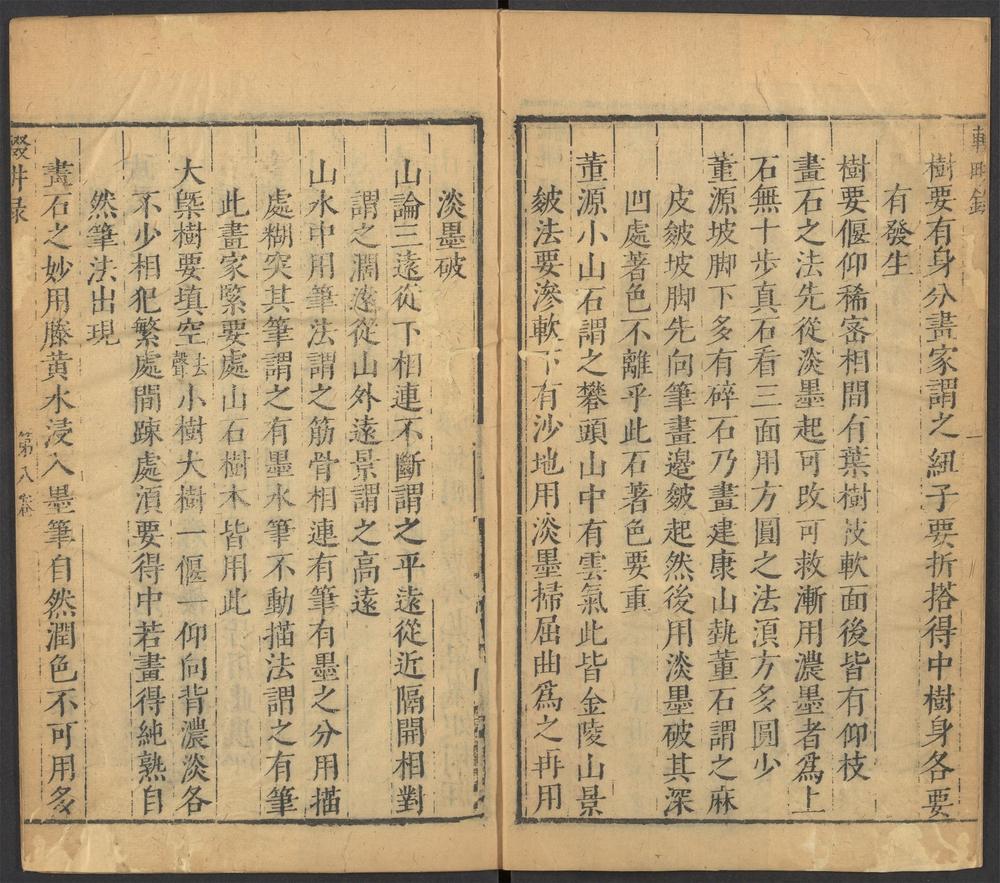 輟畊錄
一
樹要有身分畫家謂之紐子要折搭得中樹身各要
有發生
樹要偃仰稀密相間有葉樹枝軟面後皆有仰枝
畫石之法先從淡墨起可改可救漸用濃墨者爲上
石無十步真石看三面用方圓之法湏方多圓少
董源坡脚下多有碎石乃畫建康山埶董石謂之麻
皮皴坡脚先向筆畫邊皴起然後用淡墨破其深
凹處著色不離乎此石著色要重
董源小山石謂之礬頭山中有雲氣此皆金陵山景
皴法要滲軟下有沙地用淡墨掃屈曲爲之再用
淡墨破
山論三遠從下相連不斷謂之平遠從近隔開相對
謂之濶遠從山外遠景謂之高遠
山水中用筆法謂之筋骨相連有筆有墨之分用描
處糊突其筆謂之有墨水筆不動描法謂之有筆
此畫家緊要處山石樹木皆用此
大槩樹要塡空去聲小樹大樹一偃一仰向背濃淡各
不少相犯繁處間踈處湏要得中若畫得純熟自
然筆法出現
畫石之妙用藤黄水浸入墨筆自然潤色不可用多
輟畊录
第八卷